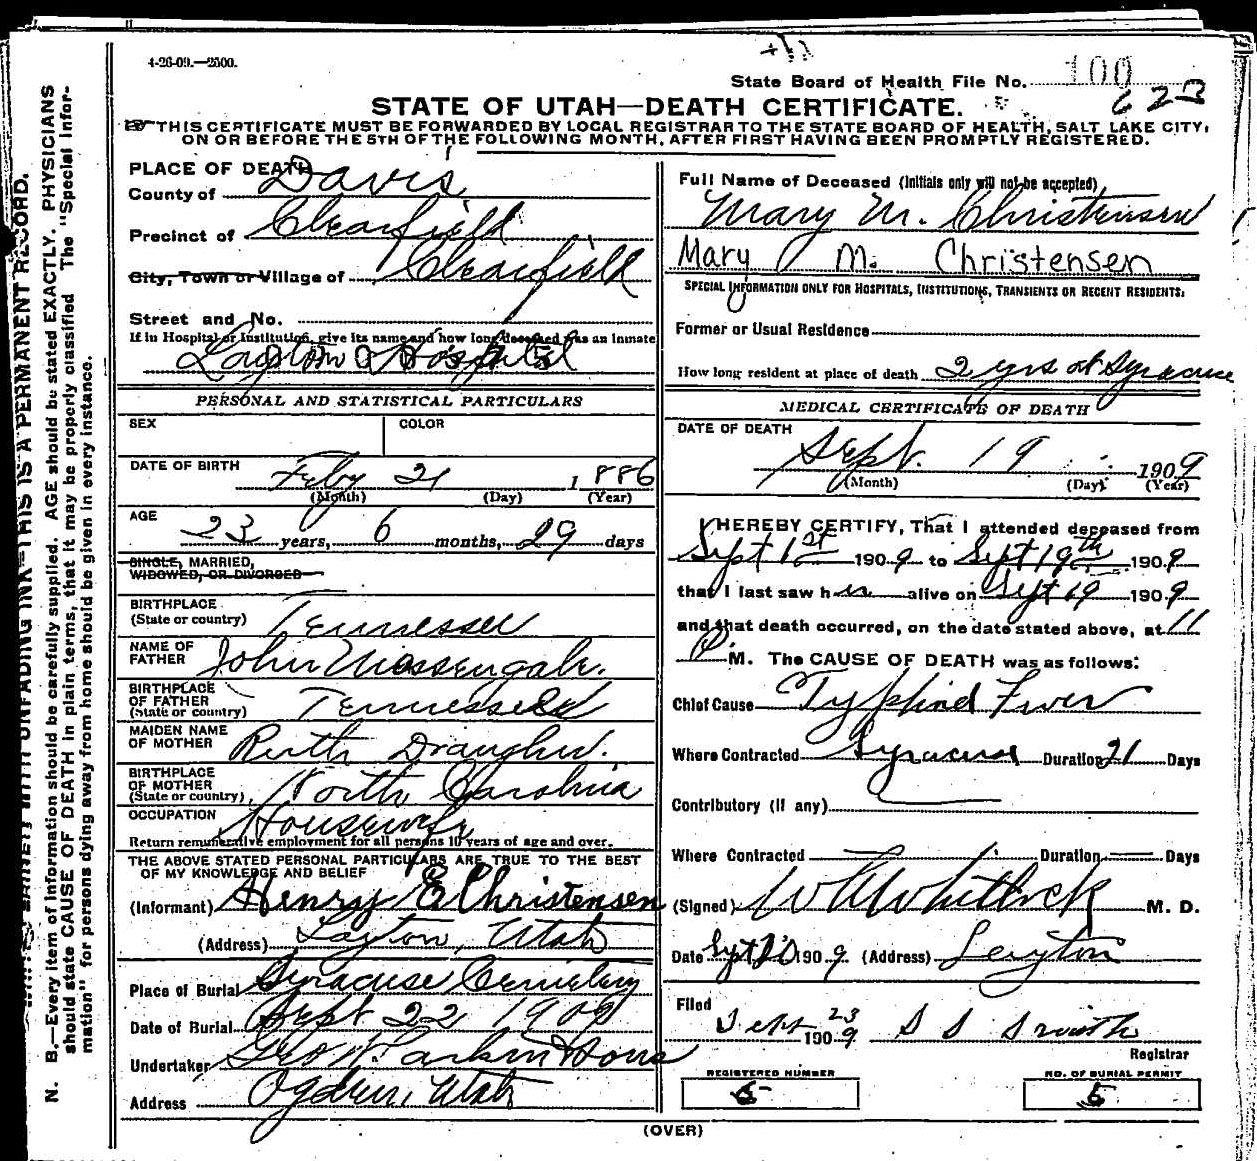 4-26-09.—2500.
State Board of Health File No. 100
623
STATE OF UTAH—DEATH CERTIFICATE.
THIS CERTIFICATE MUST BE FORWARDED BY LOCAL REGISTRAR TO THE STATE BOARD OF HEALTH, SALT LAKE CITY,
ON OR BEFORE THE 5TH OF THE FOLLOWING MONTH, AFTER FIRST HAVING BEEN PROMPTLY REGISTERED.
PLACE OF DEATH
County of Davis
Precinct of Clearfield
City, Town or Village of Clearfield
Street and No.
If in Hospital or Institution, give its name and how long deceased was an inmate
Layton Hospital
PERSONAL AND STATISTICAL PARTICULARS
SEX
COLOR
DATE OF BIRTH
Feby 21 1886
(Month) (Day) (Year)
AGE
23 years, 6 months, 29 days
SINGLE, MARRIED,
WIDOWED, OR DIVORCED
BIRTHPLACE
(State or country) Tennessee
NAME OF
FATHER John Massengale.
BIRTHPLACE
OF FATHER
(State or country) Tennessee
MAIDEN NAME
OF MOTHER Ruth Draughn.
BIRTHPLACE
OF MOTHER
(State or country) North Carolina
OCCUPATION
Housewife
Return remunerative employment for all persons 10 years of age and over.
THE ABOVE STATED PERSONAL PARTICULARS ARE TRUE TO THE BEST
OF MY KNOWLEDGE AND BELIEF
(Informant) Henry E Christensen
(Address) Layton, Utah
Place of Burial Syracuse Cemetery
Date of Burial Sept 22 1909
Undertaker Geo W. Larkin & Sons
Address Ogden, Utah
Full Name of Deceased (Initials only will not be accepted)
Mary M. Christensen
Mary M. Christensen
SPECIAL INFORMATION ONLY FOR HOSPITALS, INSTITUTIONS, TRANSIENTS OR RECENT RESIDENTS:
Former or Usual Residence
How long resident at place of death 2 yrs at Syracuse
MEDICAL CERTIFICATE OF DEATH
DATE OF DEATH
Sept. 19 1909
(Month) (Day) (Year)
I HEREBY CERTIFY, That I attended deceased from
Sept 1st 1909 to Sept 19th 1909
that I last saw her alive on Sept 19 1909
and that death occurred, on the date stated above, at 11
P. M. The CAUSE OF DEATH was as follows:
Chief Cause Typhoid Fever
Where Contracted Syracuse Duration 21 Days
Contributory (if any)
Where Contracted Duration Days
(Signed) W A Whitlock M. D.
Date Sept 20 1909. (Address) Layton
Filed
Sept 23 1909 S S Smith
Registrar
REGISTERED NUMBER
5
NO. OF BURIAL PERMIT
5
(OVER)
WRITE PLAINLY WITH UNFADING INK—THIS IS A PERMANENT RECORD.
N. B.—Every item of information should be carefully supplied. AGE should be stated EXACTLY. PHYSICIANS
should state CAUSE OF DEATH in plain terms, that it may be properly classified The "Special Infor-
mation" for persons dying away from home should be given in every instance.